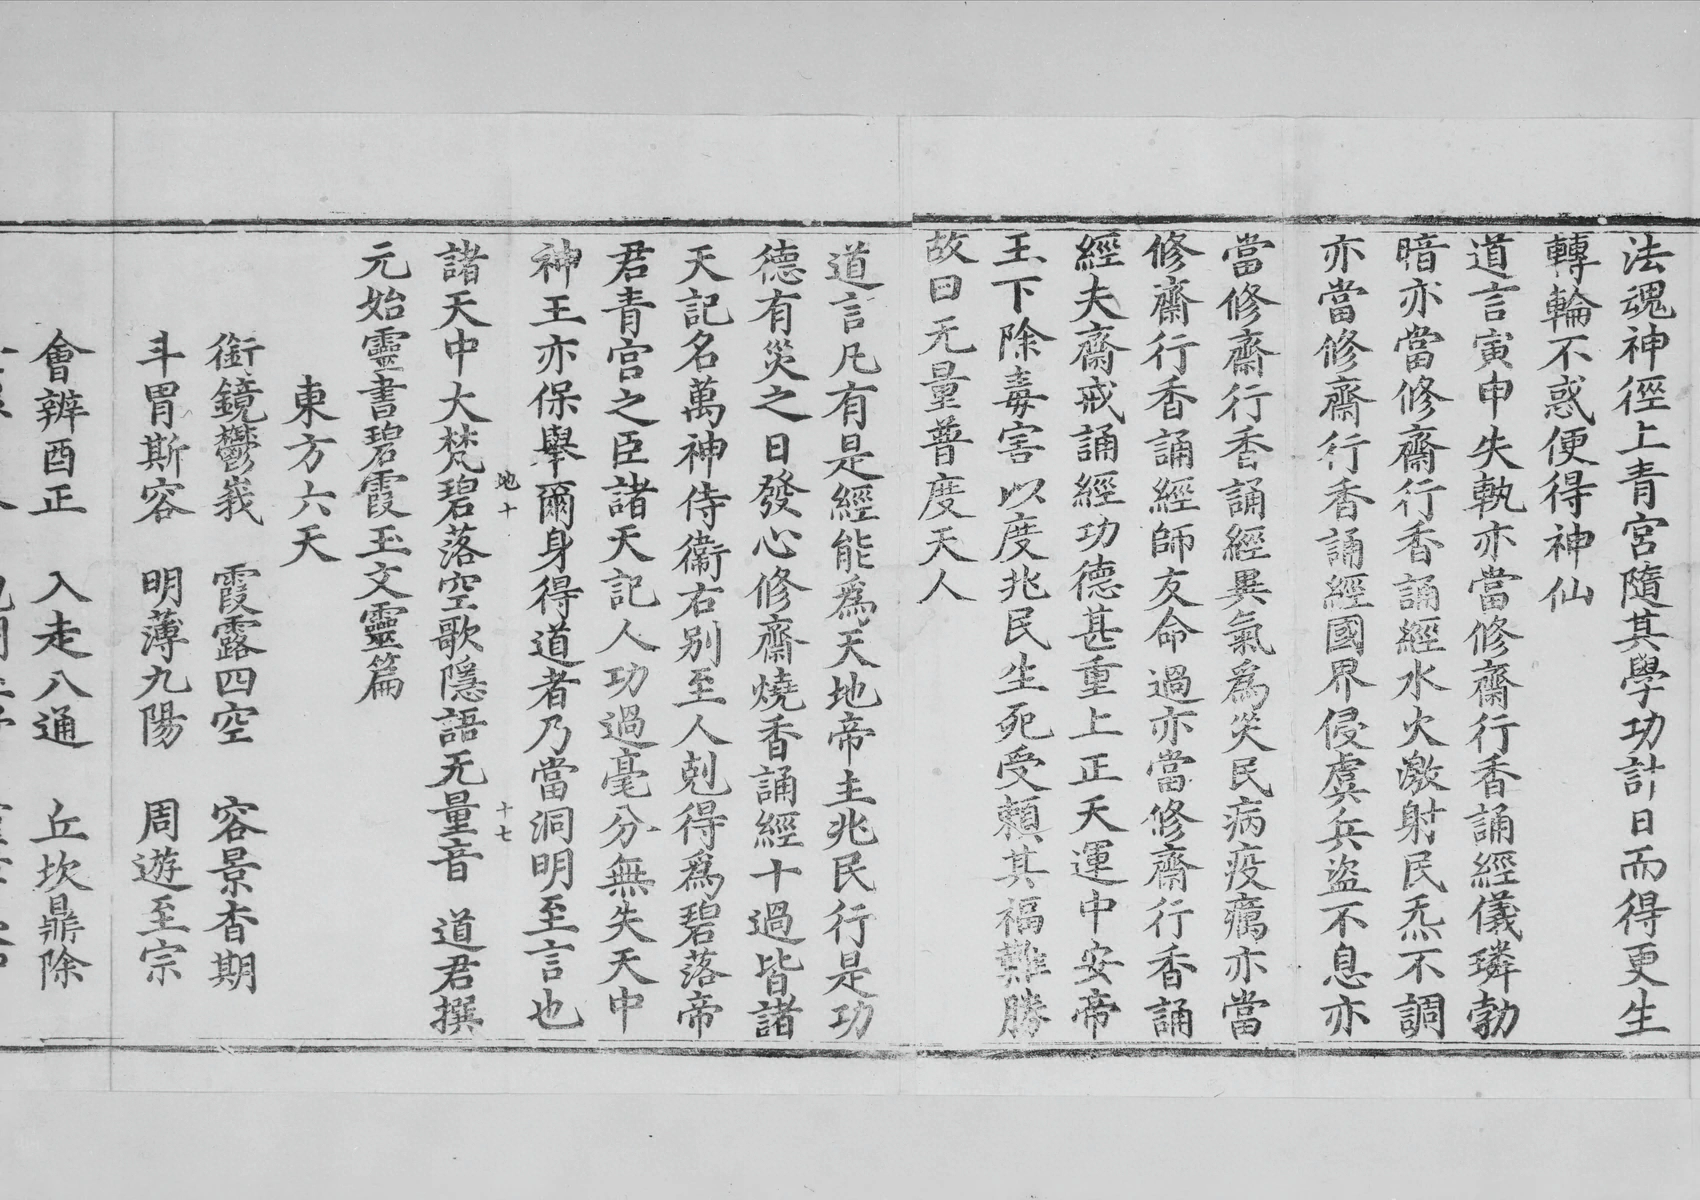 法魂神徑上青宮隨其學功計日而得更生
轉輪不惑便得神仙
道言寅申失執亦當修齋行香誦經儀璘勃
暗亦當修齋行香誦經水火激射民炁不調
亦當修齋行香誦經國界侵虞兵盜不息亦
當修齋行香誦經異氣爲災民病疫癘亦當
修齋行香誦經師友命過亦當修齋行香誦
經夫齋戒誦經功德甚重上正天運中安帝
王下除毒害以度兆民生死受賴其福難勝
故曰无量普度天人
道言凡有是經能爲天地帝主兆民行是功
德有災之日發心修齋燒香誦經十過皆諸
天記名萬神侍衞右别至人剋得爲碧落帝
君青宫之臣諸天記人功過毫分無失天中
神王亦保舉爾身得道者乃當洞明至言也
地十
十七
諸天中大梵碧落空歌隱語无量音 道君撰
元始靈書碧霞玉文靈篇
東方六天
銜鏡鬱峩 霞露四空 容景杳期
斗胃斯容 明薄九陽 周遊至宗
會辨酉正 入走八通 丘坎鼎除